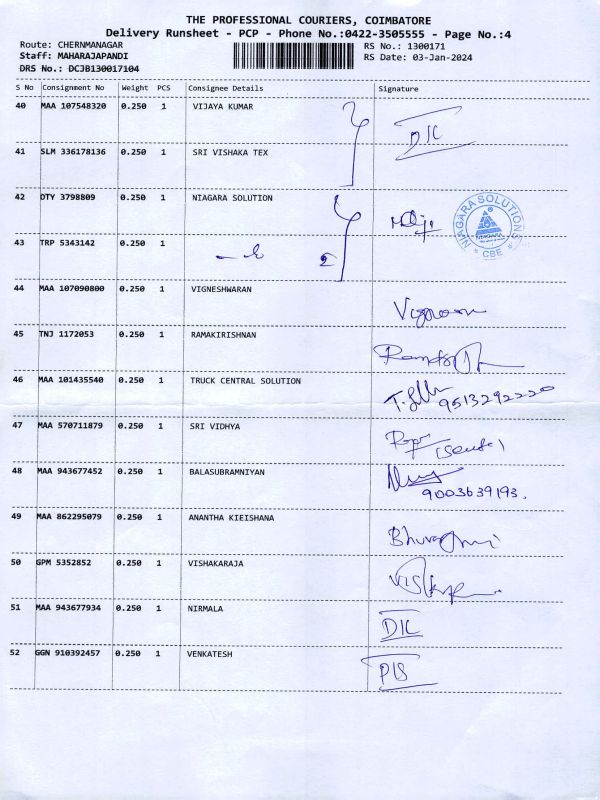 THE PROFESSIONAL COURIERS, COIMBATORE
Delivery Runsheet - PCP - Phone No.:0422-3505555 - Page No.:4
Route: CHERNMANAGAR RS No.: 1300171
Staff: MAHARAJAPANDI RS Date: 03-Jan-2024
DRS No.: DCJB130017104
S No Consignment No Weight PCS Consignee Details Signature
40 MAA 107548320 0.250 1 VIJAYA KUMAR
D/C
41 SLM 336178136 0.250 1 SRI VISHAKA TEX
42 DTY 3798809 0.250 1 NIAGARA SOLUTION
NIAGARA SOLUTIONS
NIAGARA
* CBE *
43 TRP 5343142 0.250 1
2
44 MAA 107090800 0.250 1 VIGNESHWARAN
45 TNJ 1172053 0.250 1 RAMAKIRISHNAN
46 MAA 101435540 0.250 1 TRUCK CENTRAL SOLUTION
9513292220
47 MAA 570711879 0.250 1 SRI VIDHYA
48 MAA 943677452 0.250 1 BALASUBRAMNIYAN
9003639193.
49 MAA 862295079 0.250 1 ANANTHA KIEISHANA
50 GPM 5352852 0.250 1 VISHAKARAJA
51 MAA 943677934 0.250 1 NIRMALA
D/C
52 GGN 910392457 0.250 1 VENKATESH
P/S